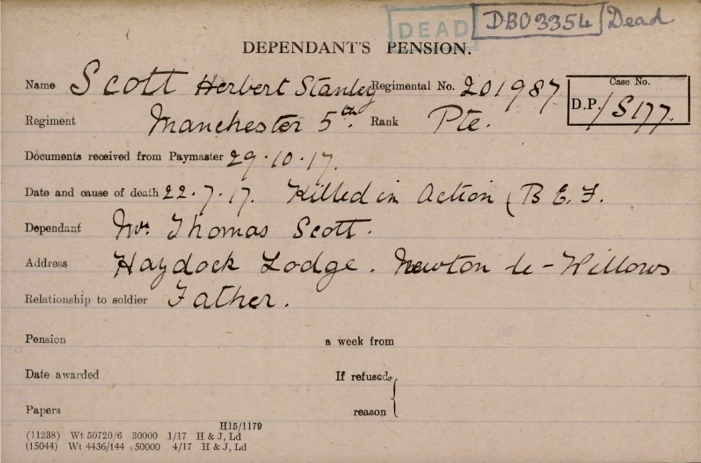 DEAD DB03354 Dead
DEPENDANT'S PENSION.
Name Scott Herbert Stanley Regimental No. 201987 Case No.
Regiment Manchester 5th. Rank Pte. D.P./S177.
Documents received from Paymaster 29.10.17.
Date and cause of death 22.7.17. Killed in Action (B E F.
Dependant Mr. Thomas Scott.
Address Haydock Lodge. Newton le-Willows
Relationship to soldier Father.
Pension a week from
Date awarded If refused,
Papers reason
H15/1179
(11238) Wt 50720/6 30000 1/17 H & J, Ld
(15044) Wt 4436/144 50000 4/17 H & J, Ld